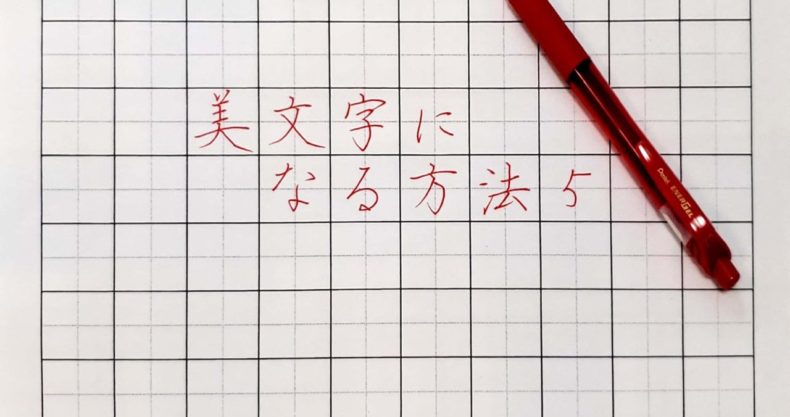 美文字に
なる方法5
Pentel ENERGEL